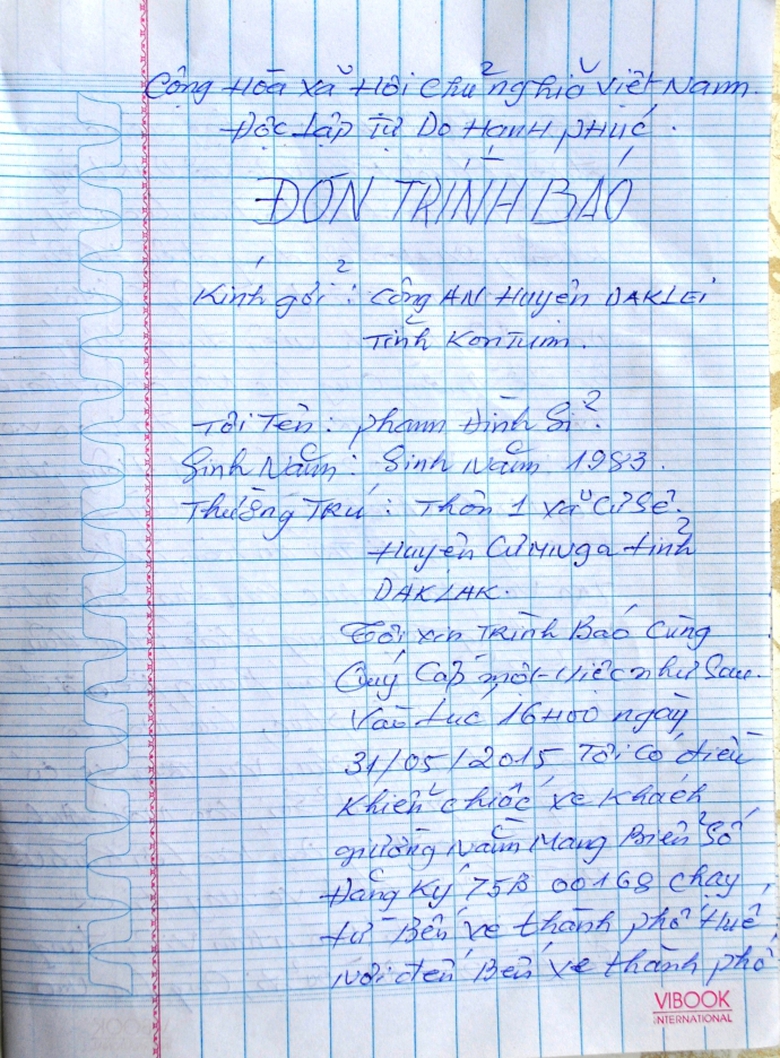 Cộng Hòa Xã Hội Chủ nghĩa Việt Nam.
Độc Lập Tự Do Hạnh PHúc.
ĐƠN TRÌNH BÁO
Kính gởi: Công AN Huyện DAKLEI
Tỉnh KonTum.
Tôi Tên: Phạm Đình Sĩ.
Sinh Năm: Sinh Năm 1983.
Thường TRú: Thôn 1 xã Cư Sê.
Huyện Cư MNga tỉnh
DAKLAK.
Tôi xin TRình Báo Cùng
Quý Cấp một việc như Sau.
Vào Lúc 16H00 ngày
31/05/2015 Tôi Có điều
Khiển chiếc xe Khách
giường Nằm Mang Biển Số
Đăng Ký 75B 00168 chạy
từ Bến xe thành phố Huế,
Nơi đến Bến xe thành phố
VIBOOK
INTERNATIONAL